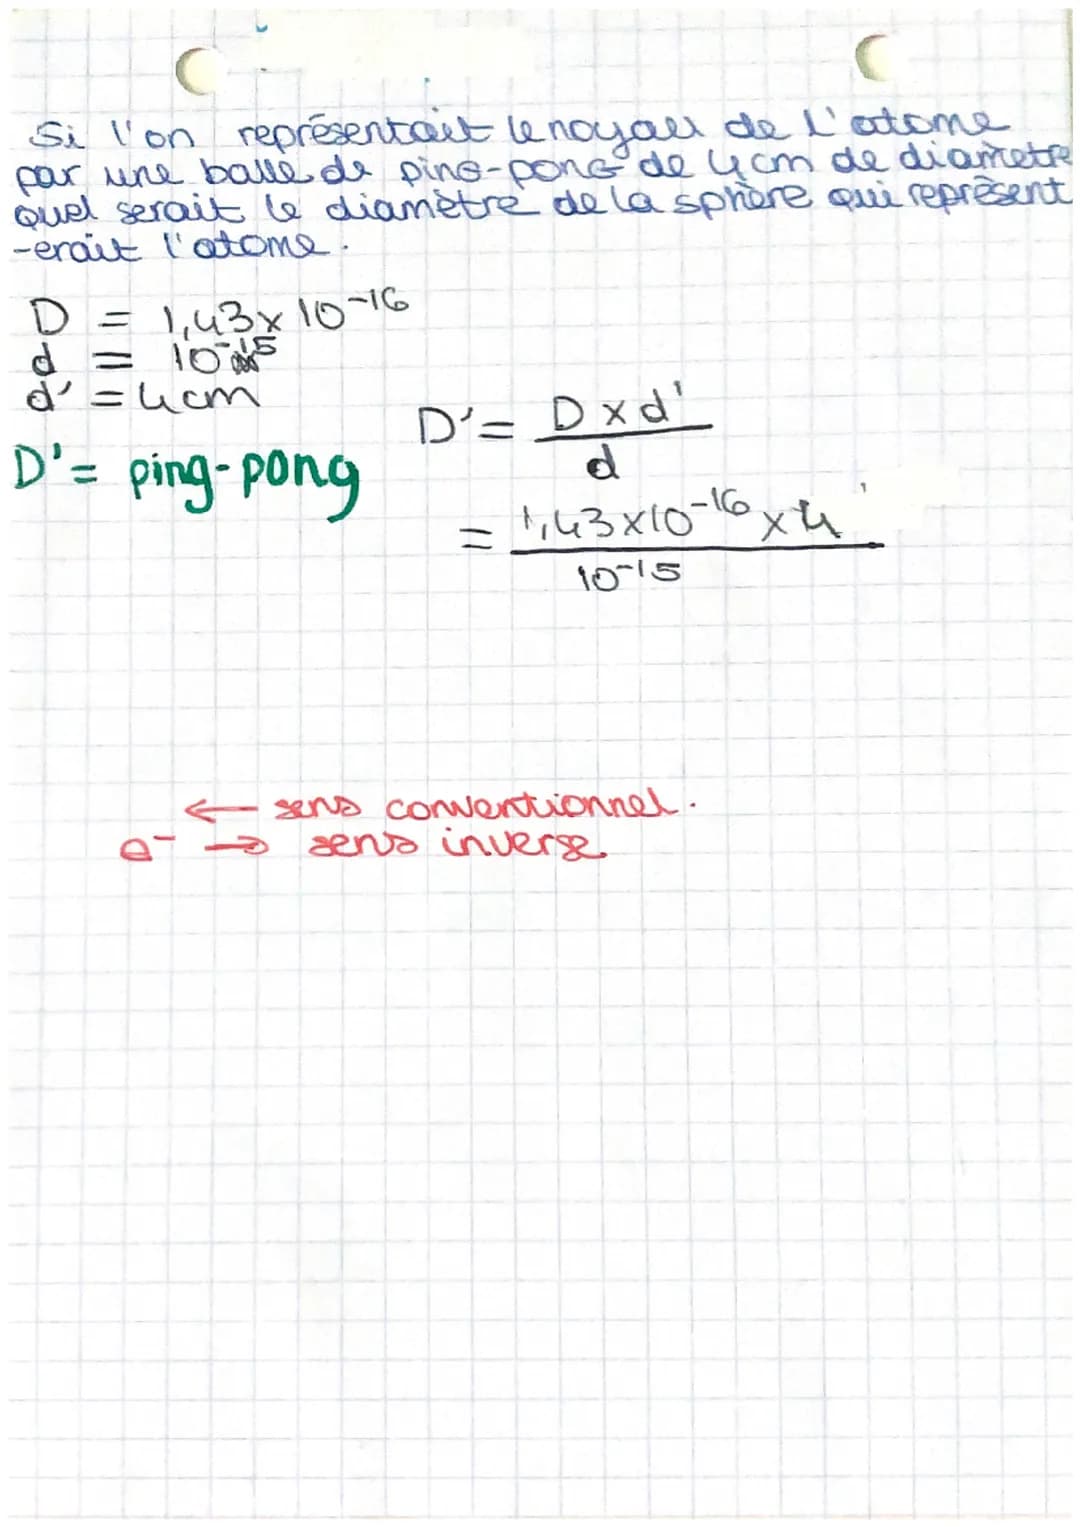 Si l'on représentait le noyau de l'atome
par une balle de ping-pong de 4cm de diamètre
Quel serait le diamètre de la sphère qui représent
-erait l'atome.
D = 1,43 x 10-16
d = 10-15
d' = 4cm
D' = ping-pong
D' = D x d'
d
= 1,43 x 10-16 x 4
10-15
← sens conventionnel.
e- → sens inverse